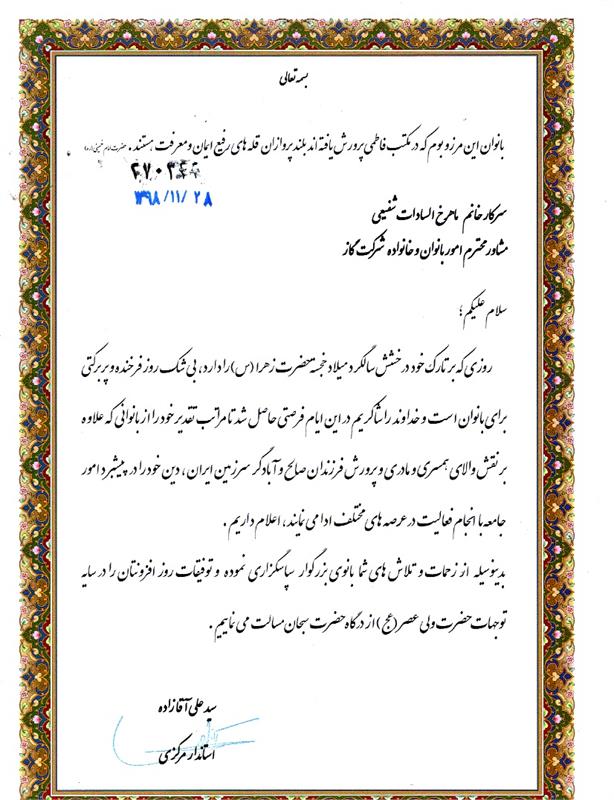 بسمه تعالی
بانوان این مرز و بوم که در مکتب فاطمی پرورش یافته اند بلند پروازان قله های رفیع ایمان و معرفت هستند . حضرت امام خمینی (ره)
۱۳۹۸/۱۱/۲۸
سرکار خانم ماهرخ السادات شفیعی
مشاور محترم امور بانوان و خانواده شرکت گاز
سلام علیکم ؛
روزی که بر تارک خود درخشش سالگرد میلاد خجسته حضرت زهرا (س) را دارد ، بی شک روز فرخنده و پر برکتی
برای بانوان است و خداوند را شاکریم در این ایام فرصتی حاصل شد تا مراتب تقدیر خود را از بانوانی که علاوه
بر نقش والای همسری و مادری و پرورش فرزندان صالح و آبادگر سرزمین ایران ، دین خود را در پیشبرد امور
جامعه با انجام فعالیت در عرصه های مختلف ادا می نمایند ، اعلام داریم .
بدینوسیله از زحمات و تلاش های شما بانوی بزرگوار سپاسگزاری نموده و توفیقات روز افزونتان را در سایه
توجهات حضرت ولی عصر (عج) از درگاه حضرت سبحان مسالت می نماییم .
سید علی آقازاده
استاندار مرکزی